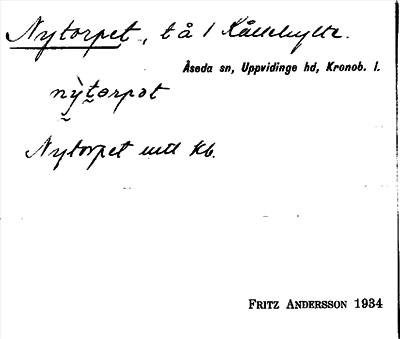 Nytorpet, t å 1 Kållehylte.
Åseda sn, Uppvidinge hd, Kronob. l.
nỳtorpət
Nytorpet Kb.
FRITZ ANDERSSON 1934